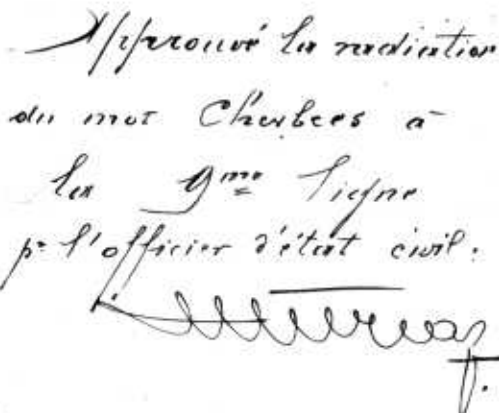 Approuvé la radiation
du mot Charbees à
la 9me ligne
pr l'officier d'état civil.